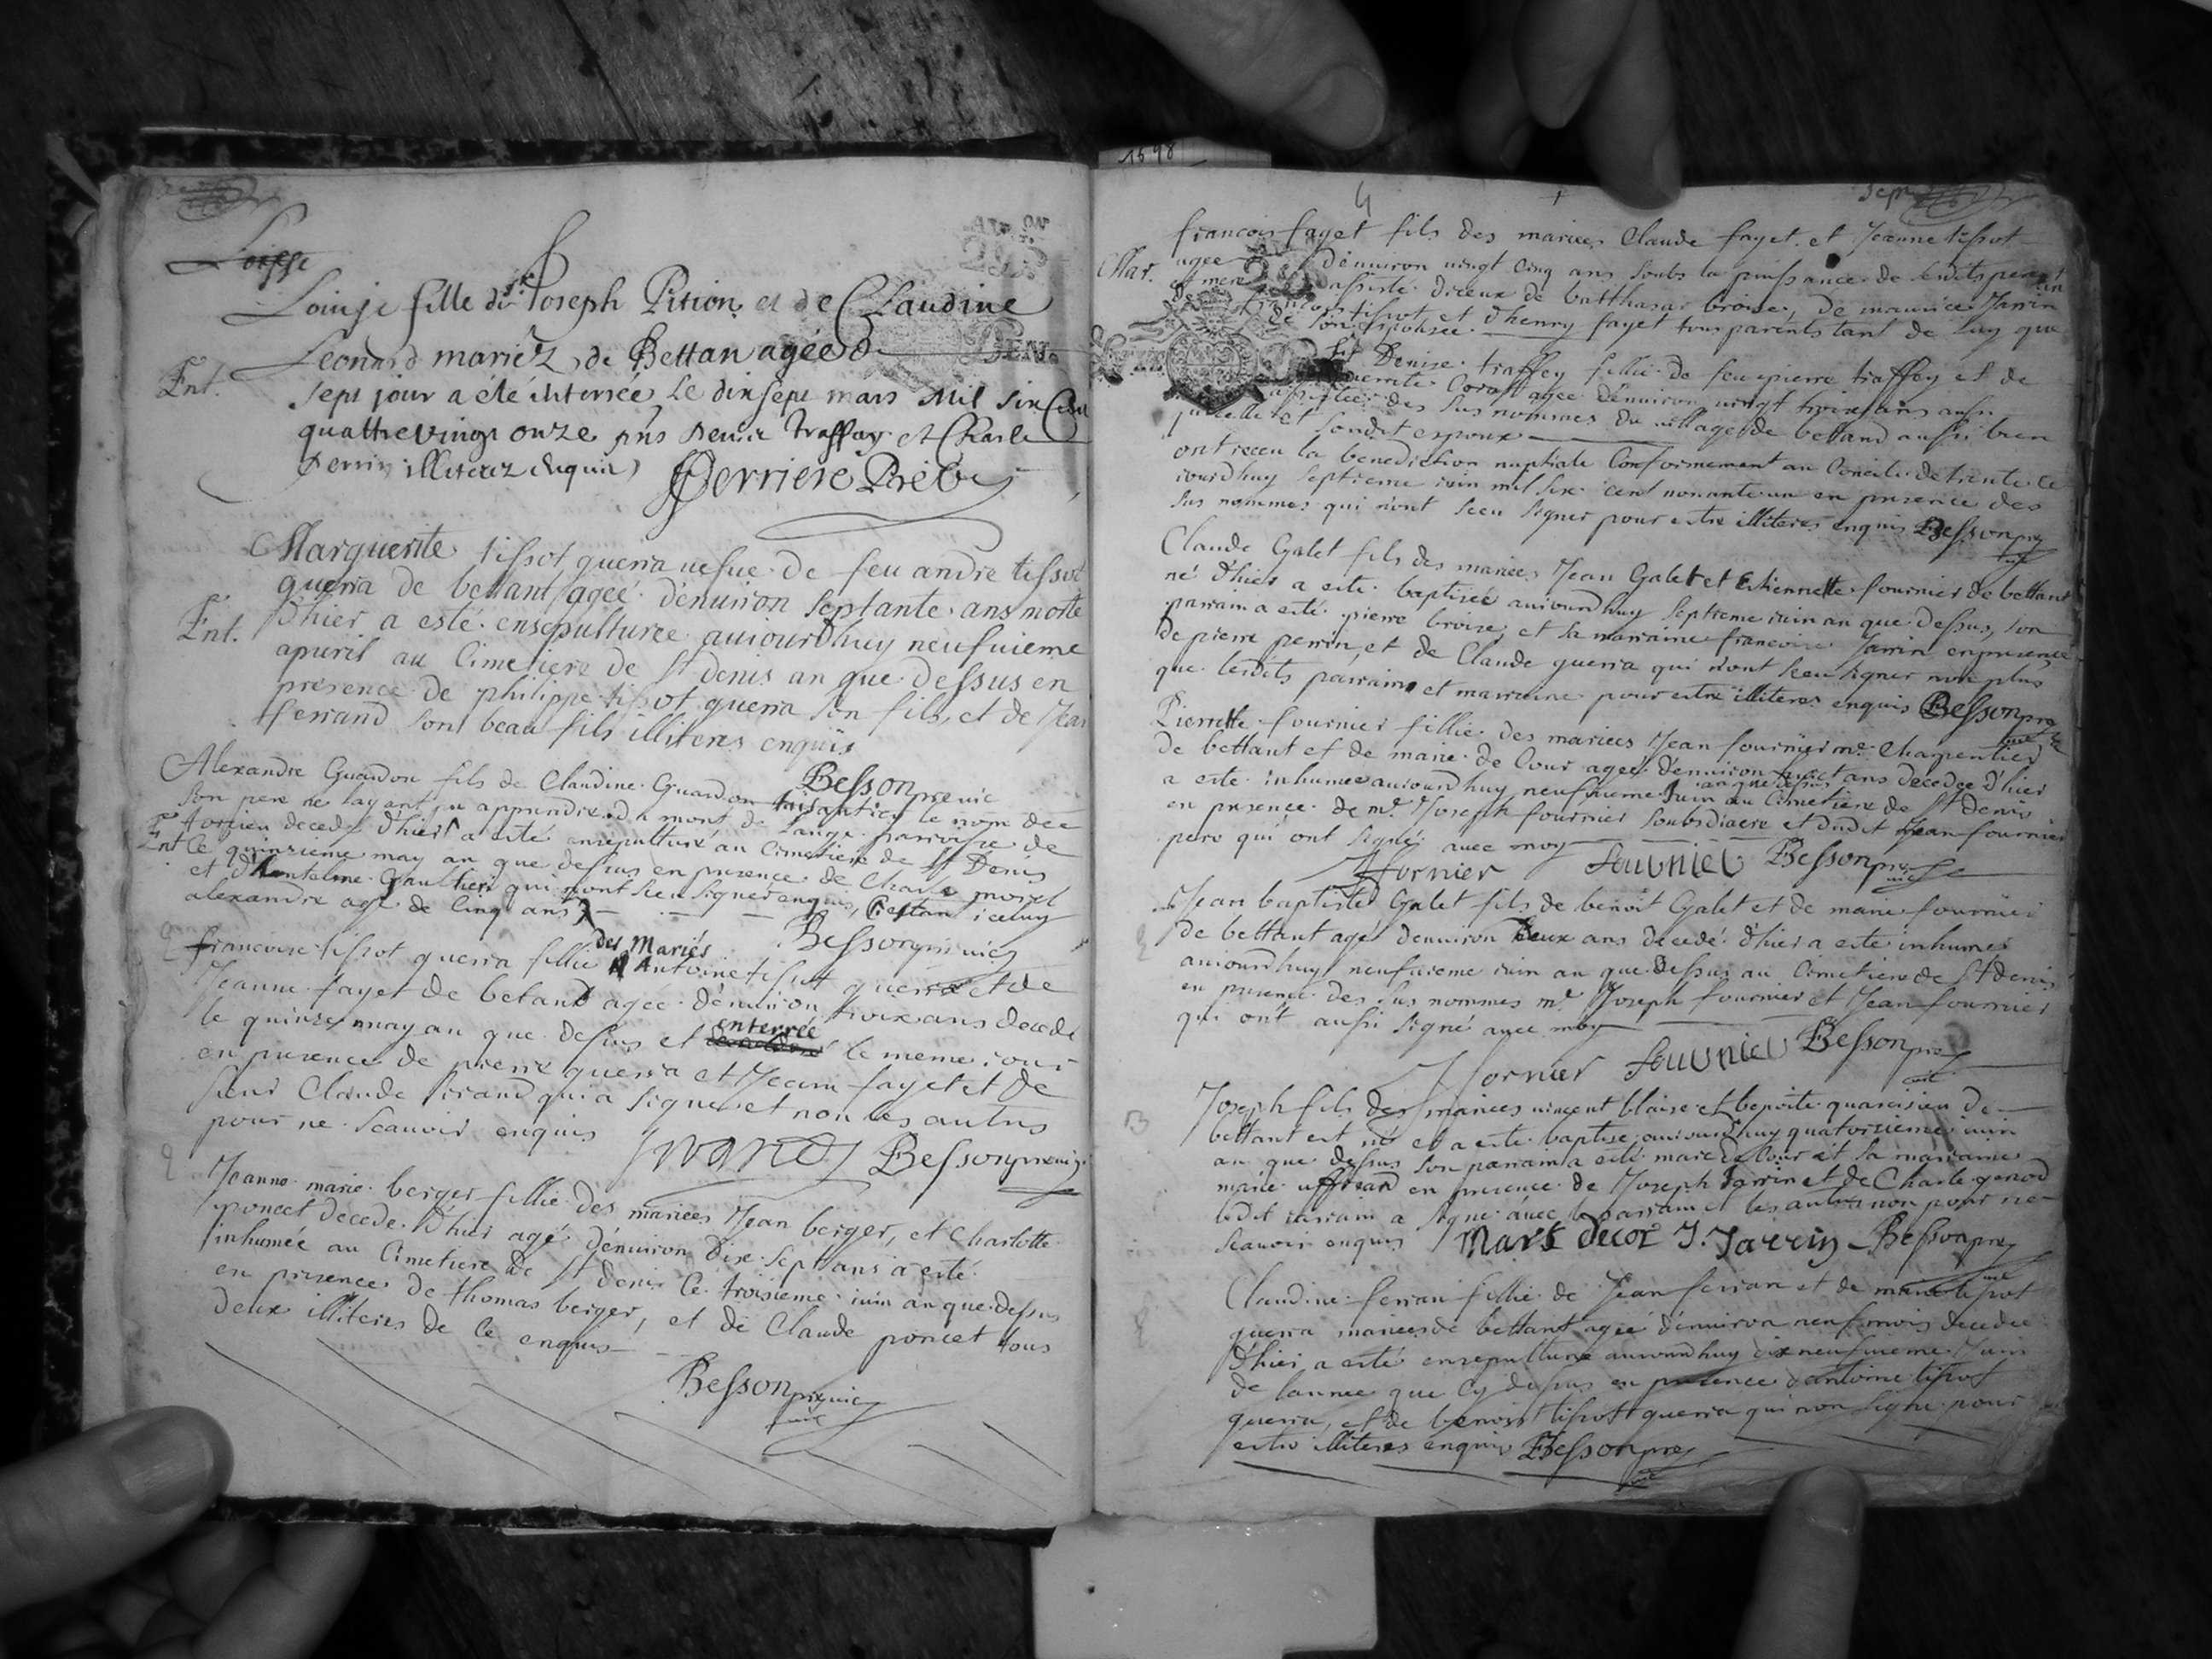 Loisse
Louise fille di Sr Joseph Pition et de Claudine
Leonard mariez de Bettan agée d
Ent.
sept jour a été interrée le dix sept mars Mil six Cent
quattre vingt onze pns Denis traffay et Charle
Perrin illiterez enquis Perriere Prêb
Marguerite tissot guerra vefve de feu andre tissot
guerra de bettant agée d'enuiron septante ans morte
Ent.
d'hier a esté ensepulturée auiourdhuy neufuieme
apuril au Cimetiere de St denis an que dessus en
presence de philippe tissot guerra son fils, et de Jean
ferrand son beau fils illiteres enquis
Besson pre vic
Alexandre Guardon fils de Claudine Guardon le nom de
son pere ne layant pu apprendre du mont de Lange parroisse de
decedé d'hier a esté ensepulturé au Cimetiere de St Denis
Ent
Ce quinzieme may an que dessus en presence de Charle morel
et d'Antelme Gaultier qui n'ont sceu signer enquis, iceluy
alexandre agé de Cinq ans
Besson pre vic
des Mariés
francoise tissot guerra fillie Antoine tissot guerra et de
Jeanne fayet de betand agée d'enuiron troix ans decedé
enterrée
le quinze may an que dessus et le meme iour
en presence de pierre guerra et Jean fayet et de
sieur Claude Sirand qui a signé et non les autres
pour ne scauoir enquis
Sirand Besson pre vic
Jeanne marie berger fillie des mariees Jean berger, et Charlotte
poncet decede d'hier agé d'enuiron dix sept ans a esté
inhumée au Cimetiere de St denis Ce troisieme iuin an que dessus
en presence de thomas berger, et de Claude poncet tous
deux illiteres de Ce enquis
Besson pre vic
1698
4
sept
francois fayet fils des mariees Claude fayet et Jeanne tissot
agée d'enuiron vingt Cinq ans soubs la puissance de sesdits pere
Mar.
et mere assisté diceux de batthasar broise, de maurice Jarrin
de francois tissot et d'henry fayet tous parents tant de luy que
de son espousée
Et Denise traffey fillie de feu pierre traffey et de
pierrette agée d'enuiron vingt troix ans aussi
assistée des sus nommes du village de betand aussi bien
qu'elle et sondit espoux
ont receu la benediction nuptiale Conformement au Concile de trente Ce
iourdhuy septieme iuin mil six cent nonante un en presence des
sus nommes qui n'ont sceu signer pour estre illiteres enquis Besson pre
vic
Claude Galet fils des mariees Jean Galet et Estiennette fournier de bettant
né d'hier a esté baptisée auiourdhuy septieme iuin an que dessus, son
parrain a esté pierre broise, et sa marraine francoise Jarrin en presence
de pierre perrin, et de Claude guerra qui n'ont sceu signer non plus
que lesdits parrains et marraine pour estre illiteres enquis Besson pre
vic
Pierrette fournier fillie des mariees Jean fournier me Charpentier
de bettant et de marie de Cour agée d'enuiron huict ans decedee d'hier
an que dessus
a esté inhumee auiourdhuy neufuieme Juin au Cimetiere de St denis
en presence de mr Joseph fournier soubsdiacre et dudit Jean fournier
pere qui ont signé auec moy
Jfornier fournier Besson pre
vic
Jean baptiste Galet fils de benoit Galet et de marie fournier
de bettant agé denuiron deux ans decedé d'hier a esté inhumee
auiourdhuy neufuieme iuin an que dessus au Cimetiere de St denis
en presence des sus nommes mr Joseph fournier et Jean fournier
qui ont aussi signé auec moy
Jfornier fournier Besson pre
vic
B
Joseph fils des mariees vincent blaise et benoite de
bettant est né et a esté baptise auiourdhuy quatorzieme iuin
an que dessus son parrain a esté marc de Cour et sa marraine
marie en presence de Joseph Jarrin et de Charle genod
ledit Jarrin a signé auec le parrain et les autres non pour ne
scauoir enquis Mark decor J. Jarrin Besson pre
vic
Claudine ferran fillie de Jean ferran et de marie tissot
guerra mariees de bettant agée d'enuiron neuf mois decedee
d'hier a esté ensepulturee auiourdhuy dix neufuieme Juin
de lannee que Cy dessus en presence d'antoine tissot
guerra, et de benoist tissot guerra qui n'on signé pour
estre illiteres enquis Besson pre
vic